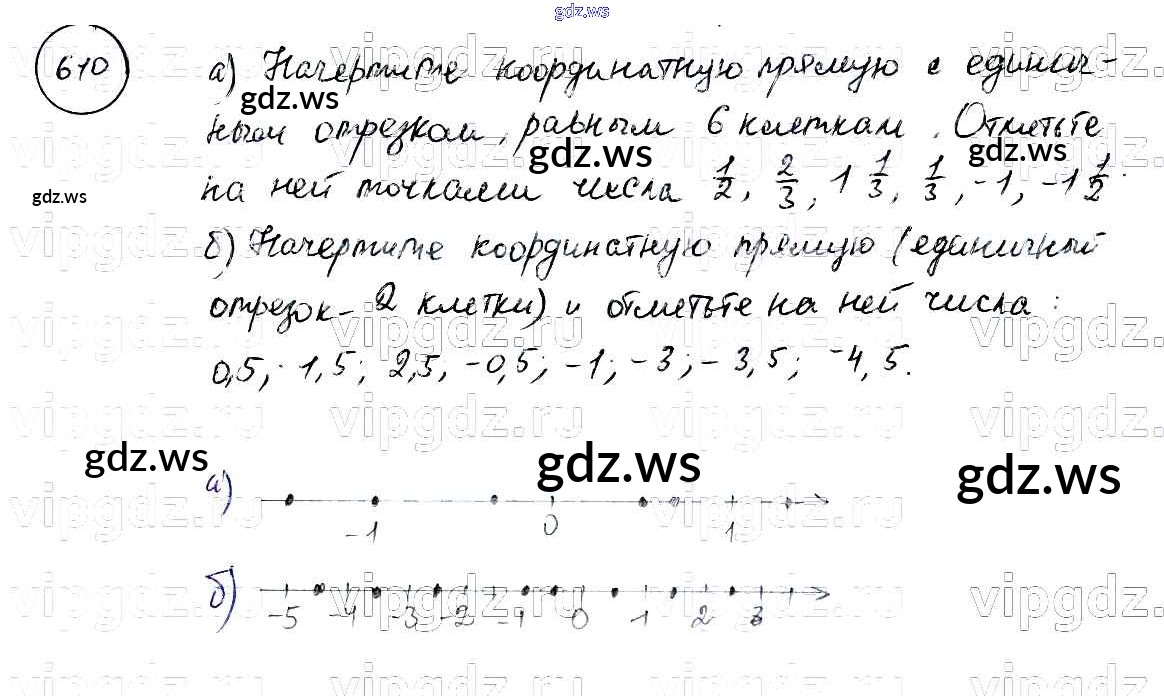 gdz.ws
610
а) Начертите координатную прямую с единич-
gdz.ws
ным отрезком, равным 6 клеткам. Отметьте
gdz.ws
gdz.ws
на ней точками числа 1/2, 2/3, 1 1/3, 1/3, -1, -1 1/2.
gdz.ws
б) Начертите координатную прямую (единичный
отрезок - 2 клетки) и отметьте на ней числа:
0,5; 1,5; 2,5; -0,5; -1; -3; -3,5; -4,5.
vipgdz.ru vipgdz.ru vipgdz.ru vipgdz.ru
gdz.ws gdz.ws gdz.ws
а)
-1 0 1
б)
-5 -4 -3 -2 -1 0 1 2 3